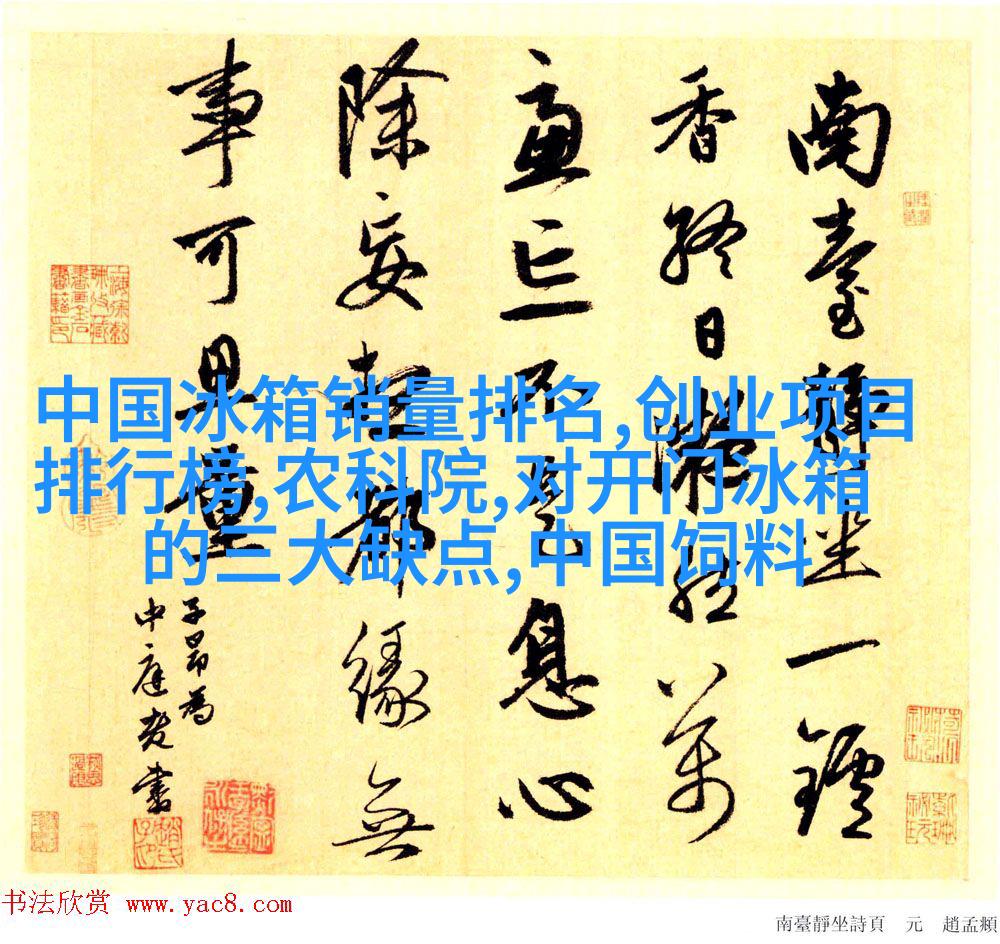 南臺靜坐一鑪
香終日凝然萬
慮亡不是息心
除妄想都緣無
事可思量
子昂為
中庭老書
中国冰箱销量排名,创业项目
排行榜,农科院,对开门冰箱
的三大缺点,中国饲料
书法欣赏 www.yac8.com
南臺靜坐詩頁 元 趙孟頫